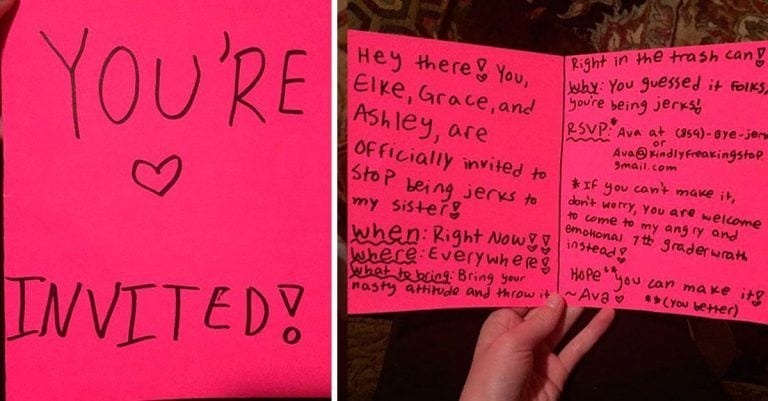 YOU'RE
INVITED!
Hey there! You,
Elke, Grace, and
Ashley, are
officially invited to
stop being jerks to
my sister!
When: Right Now!!
Where: Everywhere!
What to bring: Bring your
nasty attitude and throw it
Right in the trash can!
Why: You guessed it folks,
you're being jerks!
RSVP:* Ava at (859)-Bye-jer
or
Ava@Kindlyfreakingstop.
gmail.com
*If you can't make it,
don't worry, you are welcome
to come to my angry and
emotional 7th grader wrath
instead!
Hope** you can make it!
~Ava ♡ **(you better)